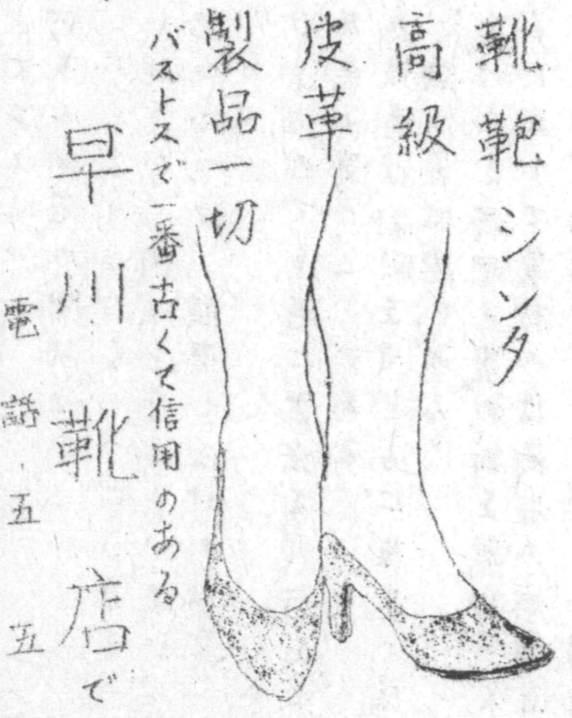 靴鞄シンタ
高級
皮革
製品一切
バストスで一番古くて信用のある
早川靴店で
電話・五五